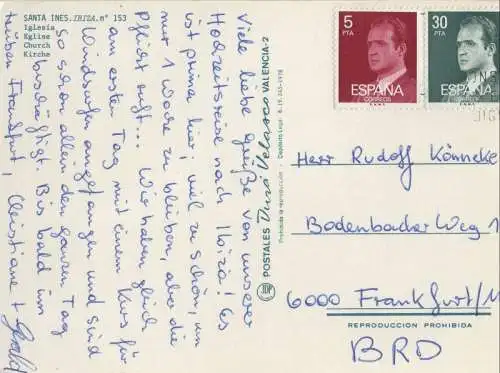 SANTA INES. IBIZA. nº 153
Iglesia
Eglise
Church
Kirche
Viele liebe Grüße von unserer
Hochzeitsreise nach Ibiza! Es
ist prima hier; viel zu schön, um
nur 1 Woche zu bleiben, aber die
Pflicht ruft... Wir haben gleich
am ersten Tag mit einem Kurs für
Windsurfen angefangen und sind
so schon allein den ganzen Tag
beschäftigt. Bis bald im
trüben Frankfurt, Christiane +
POSTALES Durá Velasco VALENCIA-2
Prohibida la reproducción
Depósito Legal
5
PTA
ESPAÑA
CORREOS
30
PTA
ESPAÑA
CORREOS
Herr Rudolf Könneke
Bodenbacher Weg 1
6000 Frankfurt/M
REPRODUCCION PROHIBIDA
BRD